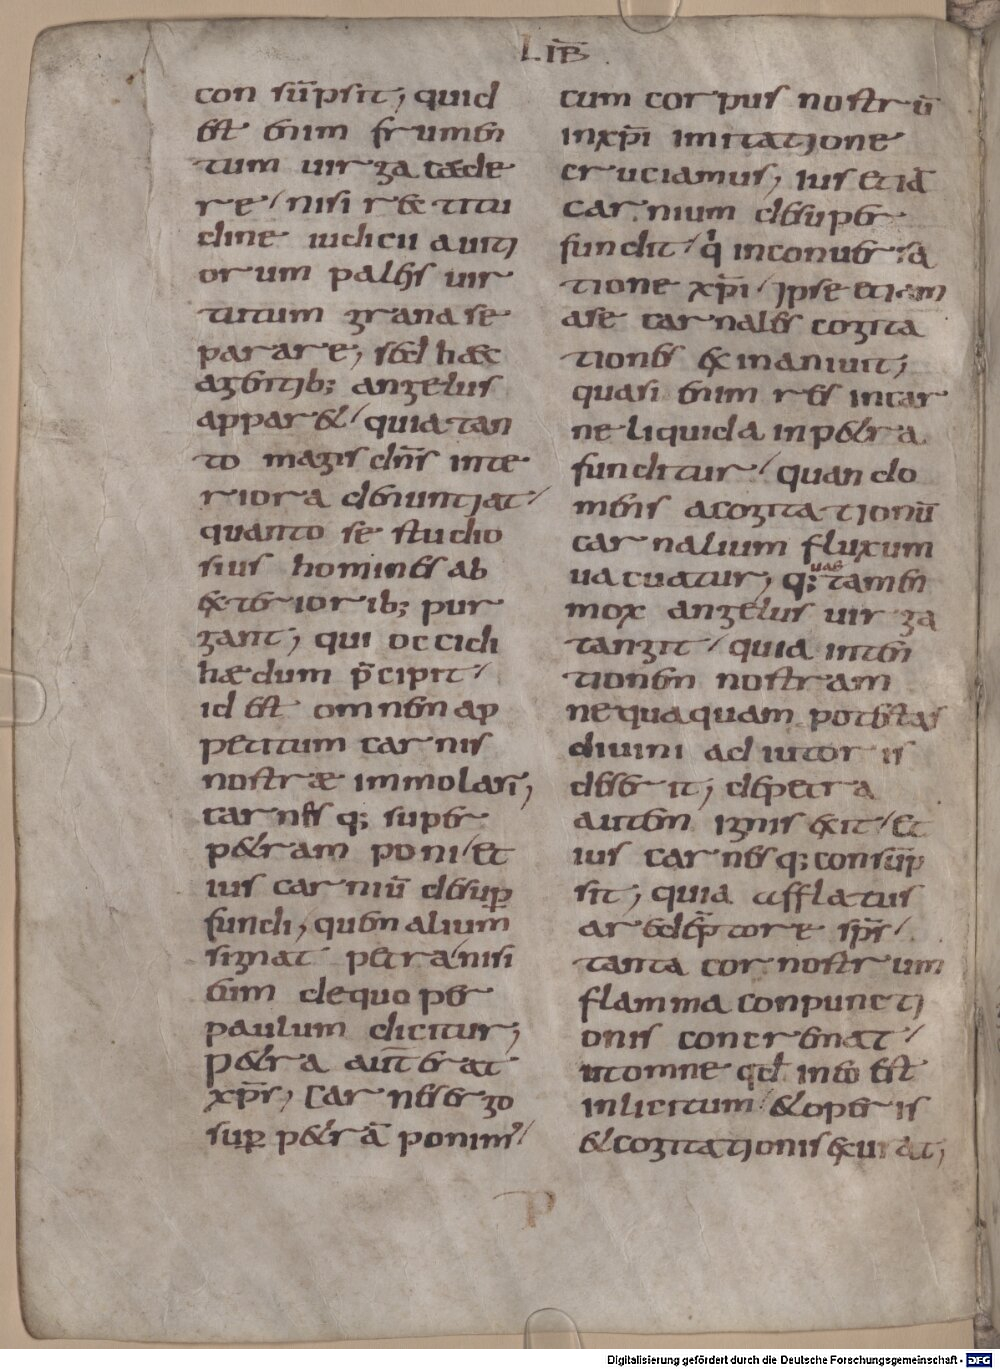 LIB̄
con sū̄psit; quid
est enim frumen
tum uirga cæde
re/ nisi rectitu
dine iudicii a uiti
orum paleis uir
tutum grana se
parare; sed hæc
agentib; angelus
apparet/ quia tan
to magis dn̄s inte
riora denuntiat/
quanto se studio
sius homines ab
exteriorib; pur
gant; qui occidi
hædum p̄cipit/
id est omnem ap
petitum carnis
nostræ immolari;
carnes q; super
petram poni/ et
ius carniū desuꝑ
fundi; quem alium
signat petra/ nisi
eum de quo per
paulum dicitur;
petra aut̄ erat
xp̄s; Carnes ergo
suꝑ petrā ponim᾽/
cum corpus nostrū
in xp̄i imitatione
cruciamus; ius etiā
carnium desuper
fundit/ qi in conuersa
tione xp̄i/ ipse etiam
a se carnales cogita
tiones exinaniuit;
quasi enim res in car
ne liquida in petra
funditur/ quando
mens a cogitationū
carnalium fluxum
uacuatur; q; tamen
mox angelus uirga
tangit/ quia inten
tionem nostram
nequaquam potestas
diuini adiutoris
deserit; de petra
autem ignis exit/ et
ius carnes q; consūp
sit; quia afflatus
a redēptore sp̄s/
tanta cor nostrum
flamma conpuncti
onis concremat/
ut omne qd in eo est
inlicitum/ et operis
et cogitationis exurat;